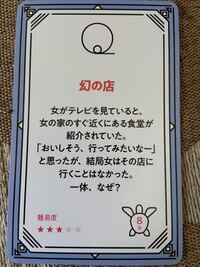 幻の店
女がテレビを見ていると、
女の家のすぐ近くにある食堂が
紹介されていた。
「おいしそう、行ってみたいなー」
と思ったが、結局女はその店に
行くことはなかった。
一体、なぜ?
難易度
★★★★★
8